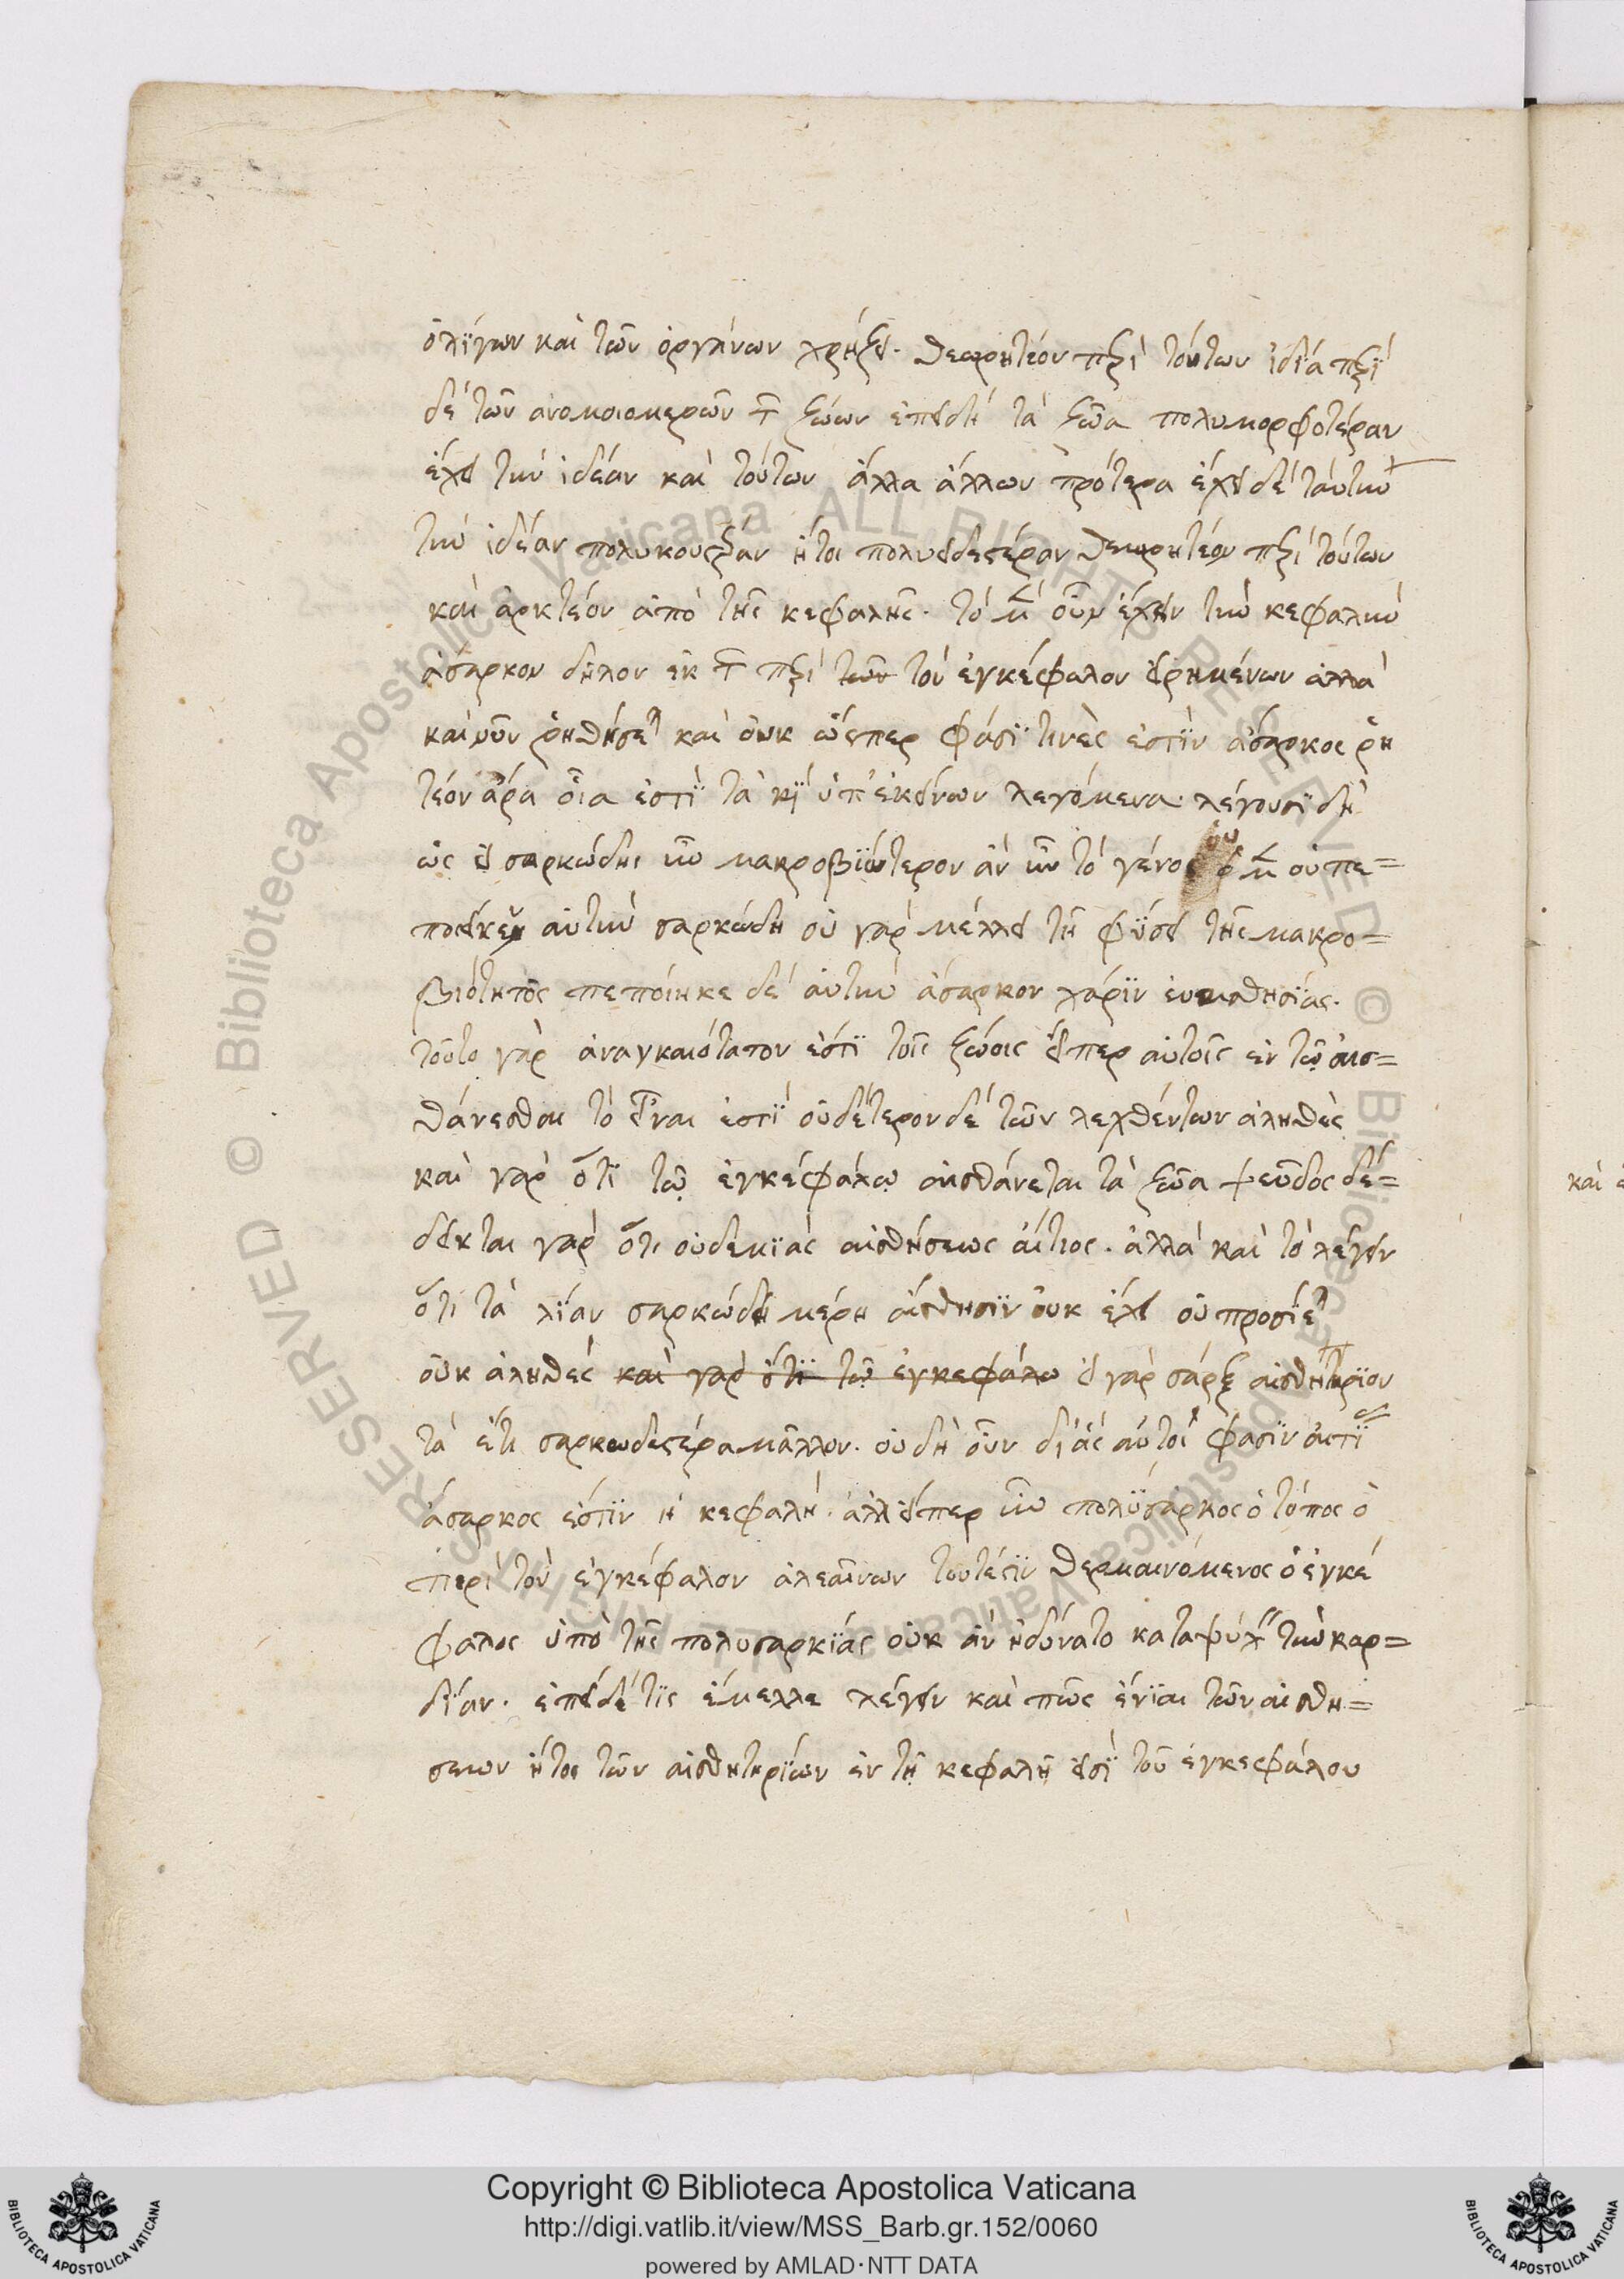 ὀλίγων καὶ τῶν ὀργάνων χρήζει. θεωρητέον περὶ τούτων ἰδίᾳ περὶ
δὲ τῶν ἀνομοιομερῶν τῶν ζώων ἐπειδὴ τὰ ζῶα πολυμορφοτέραν
ἔχει τὴν ἰδέαν καὶ τούτων ἄλλα ἄλλων πρότερα ἔχει δὲ ταύτην
τὴν ἰδέαν ἤτοι πολυειδεστέραν θεωρητέον περὶ τούτων
καὶ ἀρκτέον ἀπὸ τῆς κεφαλῆς. τὸ μὲν οὖν ἔχειν τὴν κεφαλὴν
ἄσαρκον δῆλον ἐκ τῶν περὶ τῶν τὸν ἐγκέφαλον εἰρημένων ἀλλὰ
καὶ νῦν ῥηθήσεται καὶ οὐκ ὥσπερ φάσϊ τινὲς ἐστὶν ἄσαρκος ῥη
τέον ἄρα οἷα ἐστὶ τὰ καὶ ὑπ' ἐκείνων λεγόμενα. λέγουσϊ δὴ
ὡς εἰ σαρκώδης ἦν μακροβϊώτερον ἂν ἦν τὸ γένος μὲν οὐ πε=
ποίηκεν αὐτὴν σαρκώδη οὐ γὰρ μέλλει τῇ φύσει τῆς μακρο=
βιότητος πεποίηκε δὲ αὐτὴν ἄσαρκον χάρϊν εὐαισθησίας.
τοῦτο γὰρ ἀναγκαιότατον ἐστὶ τοῖς ζώοις εἴπερ αὐτοῖς ἐν τῷ αἰσ=
θάνεσθαι τὸ εἶναι ἐστὶ οὐδέτερον δὲ τῶν λεχθέντων ἀληθὲς
καὶ γὰρ ὅτι τῷ ἐγκεφάλῳ αἰσθάνεται τὰ ζῶα ψεῦδος δέ=
δεικται γὰρ ὅτι οὐδεμϊᾶς αἰσθήσεως αἴτιος. ἀλλὰ καὶ τὸ λέγειν
ὅτι τὰ λίαν σαρκώδη μέρη αἴσθησϊν οὐκ ἔχει οὐ προσίεται
οὐκ ἀληθὲς καὶ γὰρ ὅτι τῷ ἐγκεφάλω εἰ γὰρ σάρξ αἰσθητήρϊον
τὰ ἔτι σαρκωδέστερα μᾶλλον. οὐ δὴ οὖν δι' ἃς αὐτοὶ φασὶν αἰτίας
ἄσαρκος ἐστὶν ἡ κεφαλή. ἀλλ' εἴπερ ἦν πολύσαρκος ὁ τόπος ὁ
περὶ τὸν ἐγκέφαλον ἀλεαίνων τουτέστιν θερμαινόμενος ὁ ἐγκέ
φαλος ὑπὸ τῆς πολυσαρκίας οὐκ ἂν ἠδύνατο καταψύχειν τὴν καρ=
δίαν. ἐπεὶ δέ τις ἔμελλε λέγειν καὶ πῶς ἔνϊαι τῶν αἰσθή=
σεων ἤτοι τῶν αἰσθητηρίων ἐν τῇ κεφαλῇ εἰσὶ τοῦ ἐγκεφάλου
καὶ
Copyright © Biblioteca Apostolica Vaticana
http://digi.vatlib.it/view/MSS_Barb.gr.152/0060
powered by AMLAD·NTT DATA